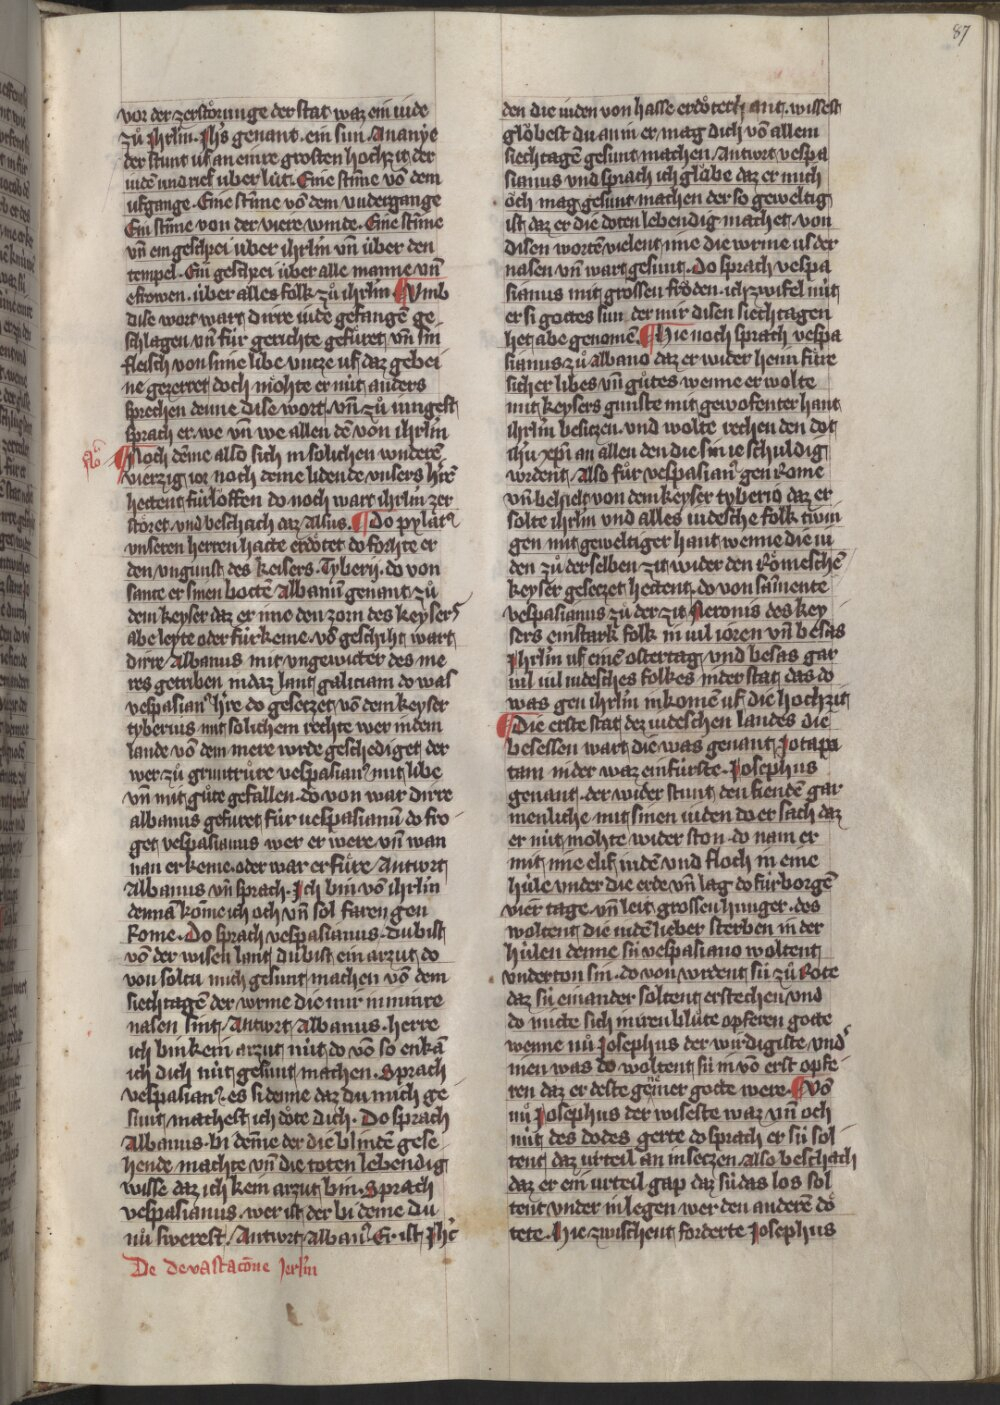 87
vor der zerstoͤrunge der stat waz ein iude
zuͦ Jhrlm̄. Jhs genant. ein sun Ananye
der stunt uf an eime grosten hochzit der
iudē und rief uber lut. Eine stīme vō dem
ufgange. Eine stīme vō dem vndergange
Ein stīme von der viere winde. Eine stīme
vn̄ ein geschrei uͥber ihrlm̄ vn̄ uͥber den
tempel. Ein geschrei uͥber alle manne vn̄
efrowen. uͥber alles folk zuͦ ihrlm̄ ¶ Vmb
dise wort wart dirre iude gefangē ge
schlagen vn̄ fuͥr gerichte gefuͤret vn̄ sin
fleisch von sime libe vntze uf daz gebei
ne gezerret doch moͤhte er nuͥt anders
sprechen denne dise wort. vn̄ zuͦ iungest
sprach er. we vn̄ we allen dē von ihrlm̄
¶ Noch dēme also sich in solichen wnderē
vierzig ior noch deme lidende vnsers hrē
hettent fuͥrloͤffen do noch wart ihrlm̄ zer
stoͤret. vnd beschach daz alsus. ¶ Do pylatꝰ
vnseren herren hatte ertoͤtet do forhte er
den vngunst des keisers. Tyberij. do von
sante er sinen bottē Albanū genant zuͦ
dem keyser daz er ime den zorn des keysers
abe leyte oder fuͥrkeme. vō geschiht wart
dirre Albanus mit vngewitter des me
res getriben in daz lant galiciam do was
vespasianꝰ hr̄e do gesetzet vō dem keyser
tyberius mit solichem rechte wer in dem
lande vō dem mere wrde geschediget der
wer zuͦ gruntruͤre vespasianꝰ mit libe
vn̄ mit guͤte gefallen. do von war dirre
albanus gefuret fuͥr vespasianū do fro
get vespasianus wer er were vn̄ wan
nan er keme. oder war er fuͤre Antwrt
Albanus vn̄ sprach. Ich bin vō ihrlm̄
dennā kōme ich och vn̄ sol faren gen
Rome. Do sprach vespasianus. du bist
vō der wisen lant du bist ein arzut do
von soltu mich gesunt machen vō dem
siechtagē der wrme die mir in mīre
nasen sint Antwrt Albanus. herre
ich bin kein arzut nuͥt do vō so enkā
ich dich nuͥt gesunt machen. Sprach
vespasianꝰ. es si denne daz du mich ge
sunt machest ich doͤte dich. Do sprach
Albanus. bi dēme der die blindē gese
hende machte vn̄ die toten lebendig
wisse daz ich kein arzut bin. Sprach
vespasianus. wer ist der bi deme du
nuͦ swerest Antwrt Albanꝰ. Er ist Jhc̄
De devastacōne Jerlm̄
den die iuden von hasse ertoͤtet hant. wissest
gloͤbest du an in er mag dich vō allem
siechtagē gesunt machen Antwrt vespa
sianus vnd sprach ich gloͤbe daz er mich
oͤch mag gesunt machen der so geweltig
ist daz er die doten lebendig machet. von
disen wortē vielent ime die wrme us der
nasen vn̄ wart gesunt. Do sprach vespa
sianus mit grossen froͤden. ich zwifel nuͥt
er si gottes sun der mir disen siechtagen
het abe genomē. ¶ Hie noch sprach vespa
sianus zuͦ albano daz er wider heim fuͤre
sicher libes vn̄ guͤtes wenne er wolte
mit keysers gunste mit gewofenter hant
ihrlm̄ besitzen. vnd wolte rechen den dot
ihu xp̄i an allen den die sin ie schuldig
wrdent Also fuͦr vespasianꝰ gen Rome
vn̄ behielt von dem keyser tyberio daz er
solte ihrlm̄ vnd alles iudesche folk twin
gen mit geweltiger hant wenne die iu
den zuͦ der selben zit wider den Roͤmeschē
keyser gesetzet hettent. do von samente
vespasianus zuͦ der zit Neronis des key
sers ein stark folk in vil ioren vn̄ besas
Jhrlm̄ uf einē ostertag vnd besas gar
vil vil iudesches folkes in der stat das do
was gen ihrlm̄ in komē uf die hochzit
¶ Die erste stat dez iudeschen landes die
besessen wart die was genant Jotapa
tam in der waz ein fuͥrste. Josephus
genant. der wider stunt den fiendē gar
menliche mit sinen iuden do er sach daz
er nuͥt mohte wider ston. do nam er
mit ime elif iudē vnd floch in eine
huͥle vnder die erde vn̄ lag do fuͥrborgē
vier tage. vn̄ leit grossen hunger. des
woltent die iudē lieber sterben in der
huͥlen denne suͥ vespasiano woltent
vnderton sin. do von wrdent suͥ zuͦ Rote
daz suͥ einander soltent erstechen vnd
do mitte sich in iren bluͤte opferen gotte
wenne nuͦ Josephus der wirdigiste vnd̾
inen was do woltent suͥ in vō erst opfe
ren daz er deste genēmer gotte were. ¶ Vō
nuͦ Josephus der wiseste waz vn̄ och
nuͥt des dodes gerte do sprach er suͥ sol
tent daz urteil an in setzen. Also beschach
daz er ein urteil gap daz suͥ das los sol
tent vnder in legen wer den anderē doͤ
tete. Hie zwischent forderte Josephus